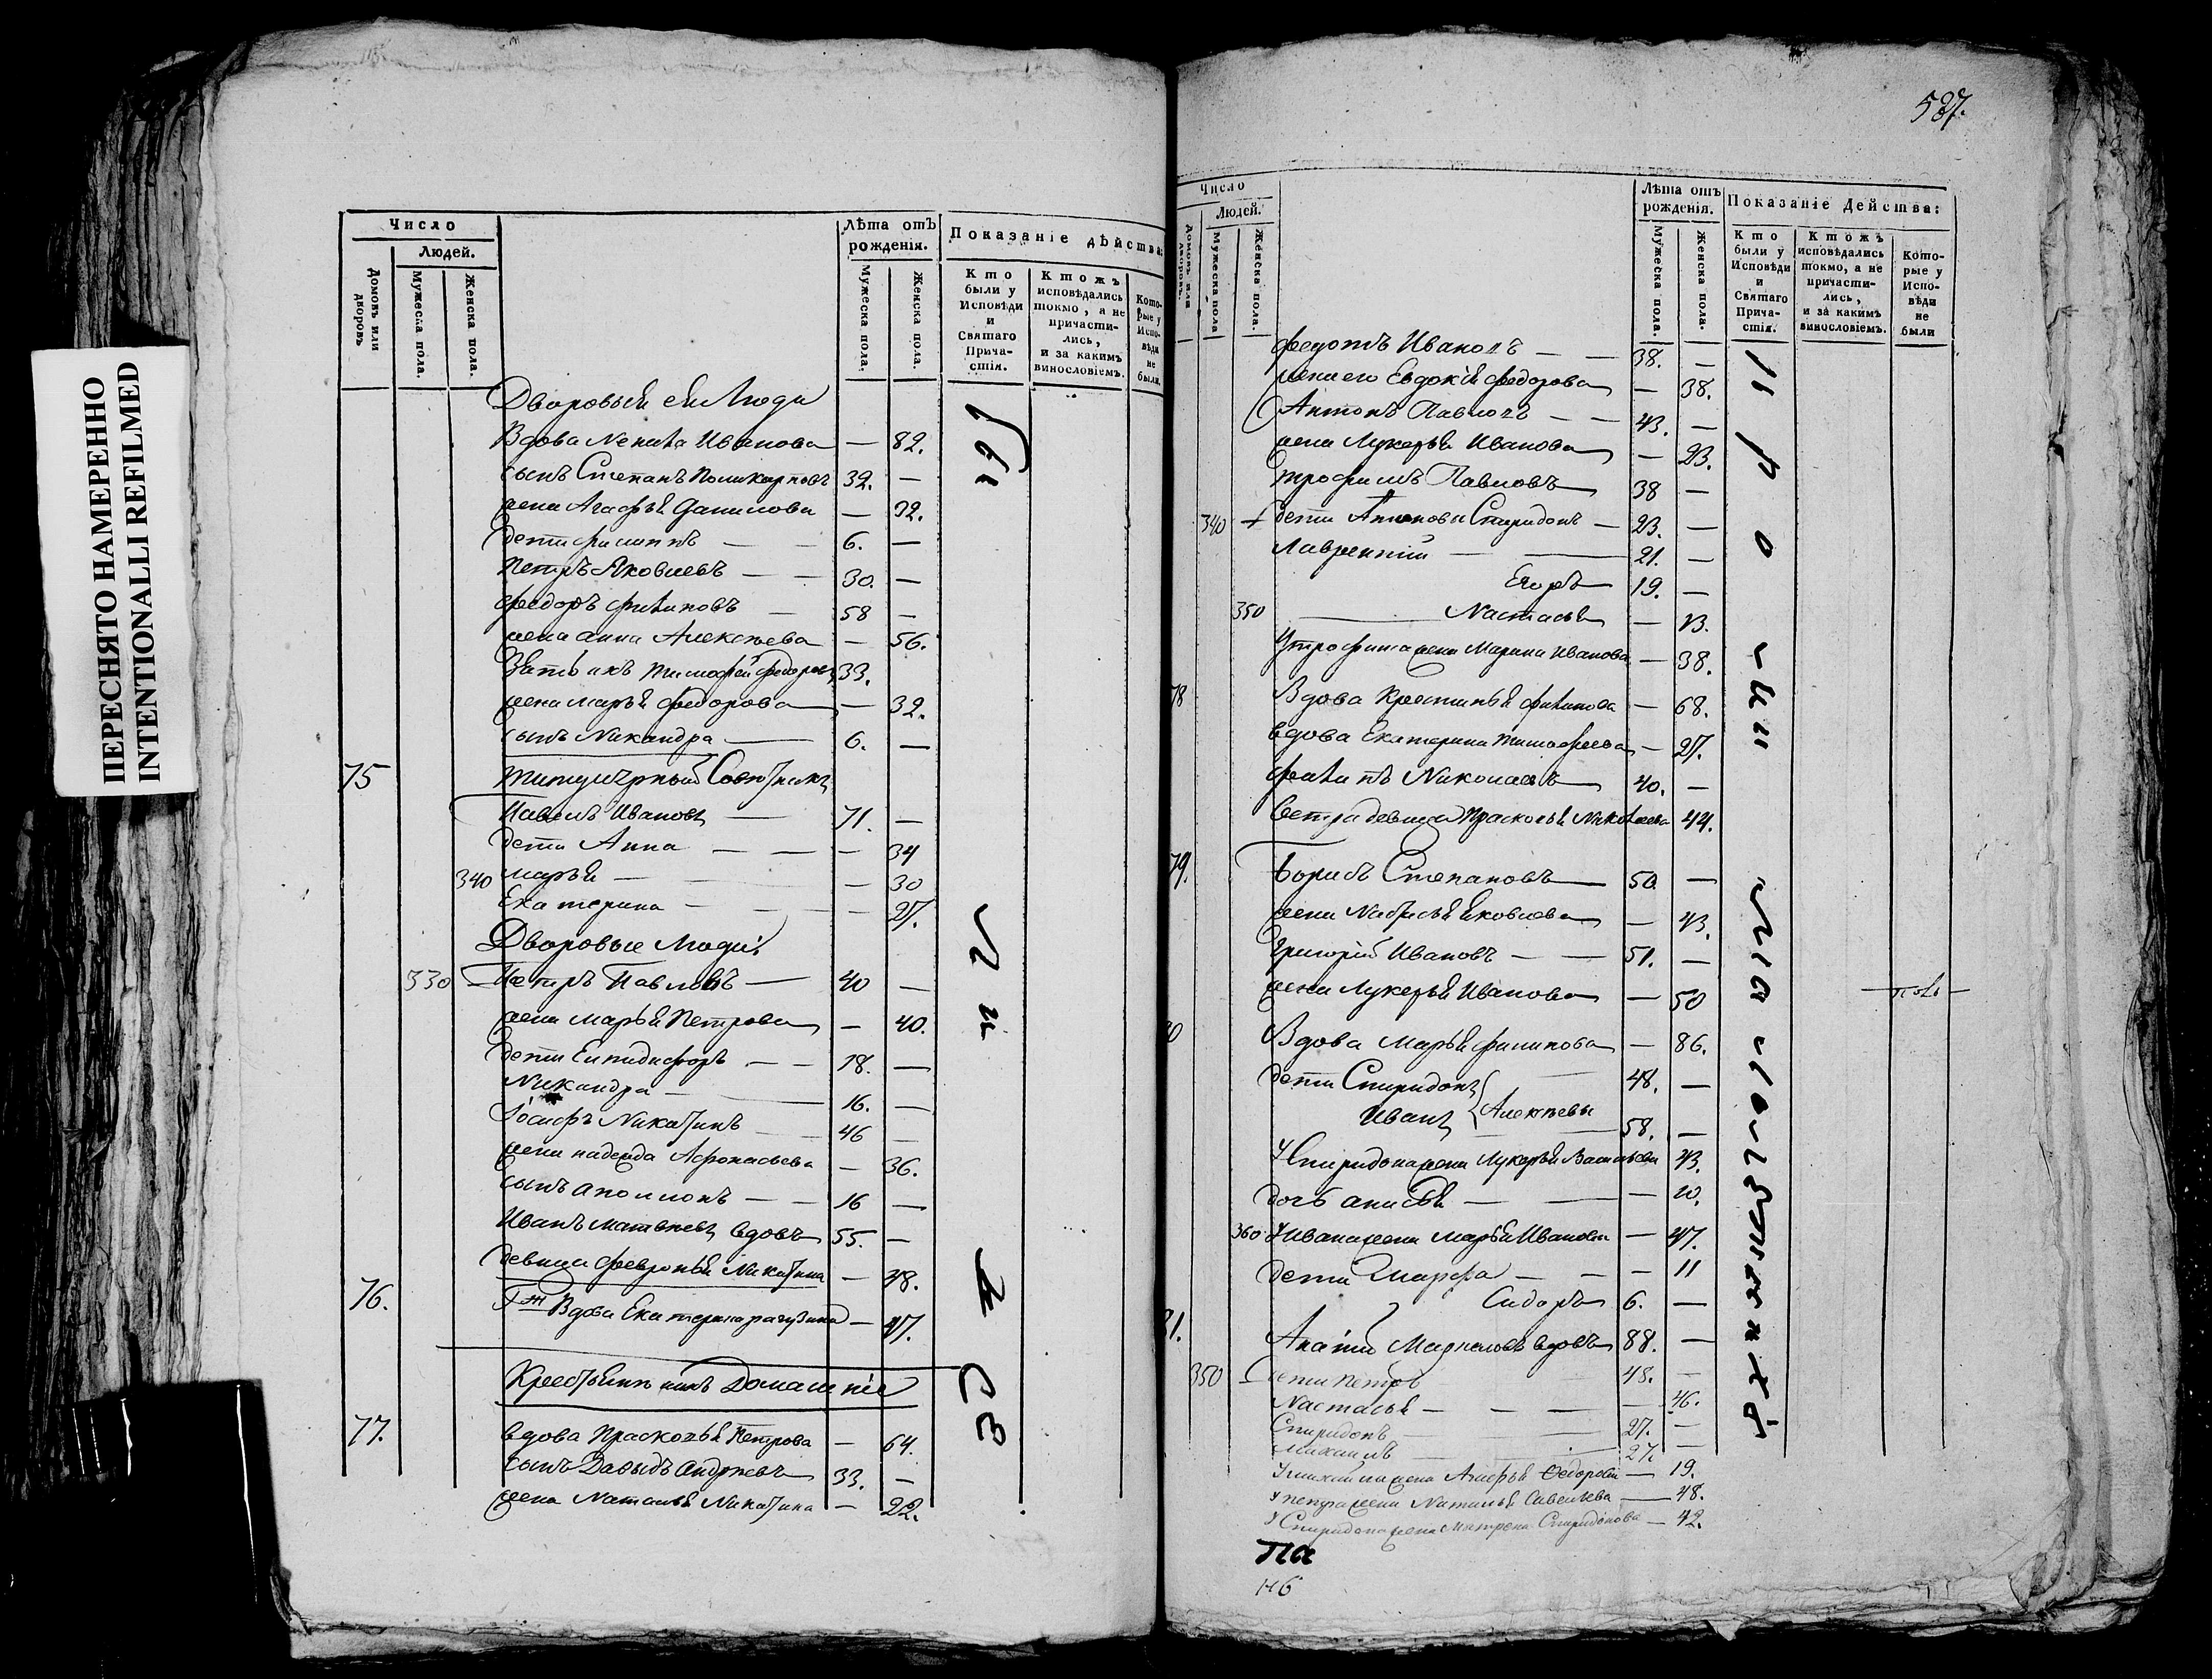 ПЕРЕСНЯТО НАМЕРЕННО
INTENTIONALLI REFILMED
Число
Людей.
Домовъ или дворовъ
Мужеска пола.
Женска пола.
Лѣта отъ рожденія.
Мужеска пола.
Женска пола.
Показаніе дѣйства:
Кто были у Исповѣди и Святаго Прича-стія.
Ктожъ исповѣдались токмо, а не причасти-лись, и за какимъ винословіемъ.
Кото-рые у Испо-вѣди не были.
Дворовыя ея Люди
Вдова Ивановa — 82.
сынъ Степанъ Поликарповъ 32. —
жена Агафья Данилова — 32.
дети Филиппъ — 6. —
Петръ Яковлевъ — 30. —
Федоръ Филиповъ — 58 —
жена Анна Алексѣева — 56.
Зять ихъ Тимофей Федоровъ 33.
жена Марья Федорова — 32.
сынъ Никандра — 6. —
75 Титулярный Советникъ
Павелъ Ивановъ — 71. —
дети Анна — 34
340 Марья — 30
Екатерина — 27.
Дворовые Люди
330 Петръ Павловъ — 40 —
жена Марья Петрова — 40.
дети Епидифоръ — 18. —
Никандра — 16. —
Іосифъ Никитинъ — 46 —
жена Надежда Афонасьева — 36.
сынъ Аполлонъ — 16 —
Иванъ Матвѣевъ вдовъ 55. —
девица Февронья Никитина — 48.
76. Вдова Екатерина — 47.
Домашніе
77. вдова Прасковья Петрова — 64.
сынъ Давыдъ Андреевъ 33. —
жена Наталья Никитина — 22.
537.
Число
Людей.
Домовъ или дворовъ.
Мужеска пола
Женска пола.
Лѣта отъ рожденія.
Мужеска пола.
Женска пола.
Показаніе Действа:
Кто были у Исповѣди и Святаго Прича-стія.
Ктожъ исповѣдались токмо, а не причасти-лись, и за какимъ винословіемъ.
Кото-рые у Испо-вѣди не были
Федотъ Ивановъ — 38. —
жена его Евдокія Федорова — 38.
Антонъ Павловъ — 43. —
жена Лукерья Иванова — 23.
Трофимъ Павловъ 38 —
340 дети Антоновы Спиридонъ — 23. —
Лаврентій — 21. —
Егоръ 19. —
350 Настасья — 13.
У Трофима жена Марина Иванова — 38.
78 Вдова Крестинья Филипова — 68.
вдова Екатерина Тимофеева — 27.
Филипъ Николаевъ 40. —
Сестра девица Прасковья Николаева 44.
79. Борисъ Степановъ — 50. —
жена Настасья Яковлева — 43.
Григорій Ивановъ — 51. —
жена Лукерья Иванова — 50
Вдова Марья Филипова — 86.
дети Спиридонъ 48. —
Иванъ Алексѣевы 58. —
У Спиридона жена Лукерья 43.
дочь Анисья — 10.
360 У Ивана жена Марья Иванова — 47.
дети Марфа — 11
Сидоръ 6. —
81. вдовъ 88. —
350 дети Петръ 48. —
Настасья — 46.
Спиридонъ — 27. —
Михаилъ — 27 —
У Михаила жена Агафья Федорова — 19.
У Петра жена Наталья Савельева — 48.
У Спиридона жена Матрена Спиридонова — 42.